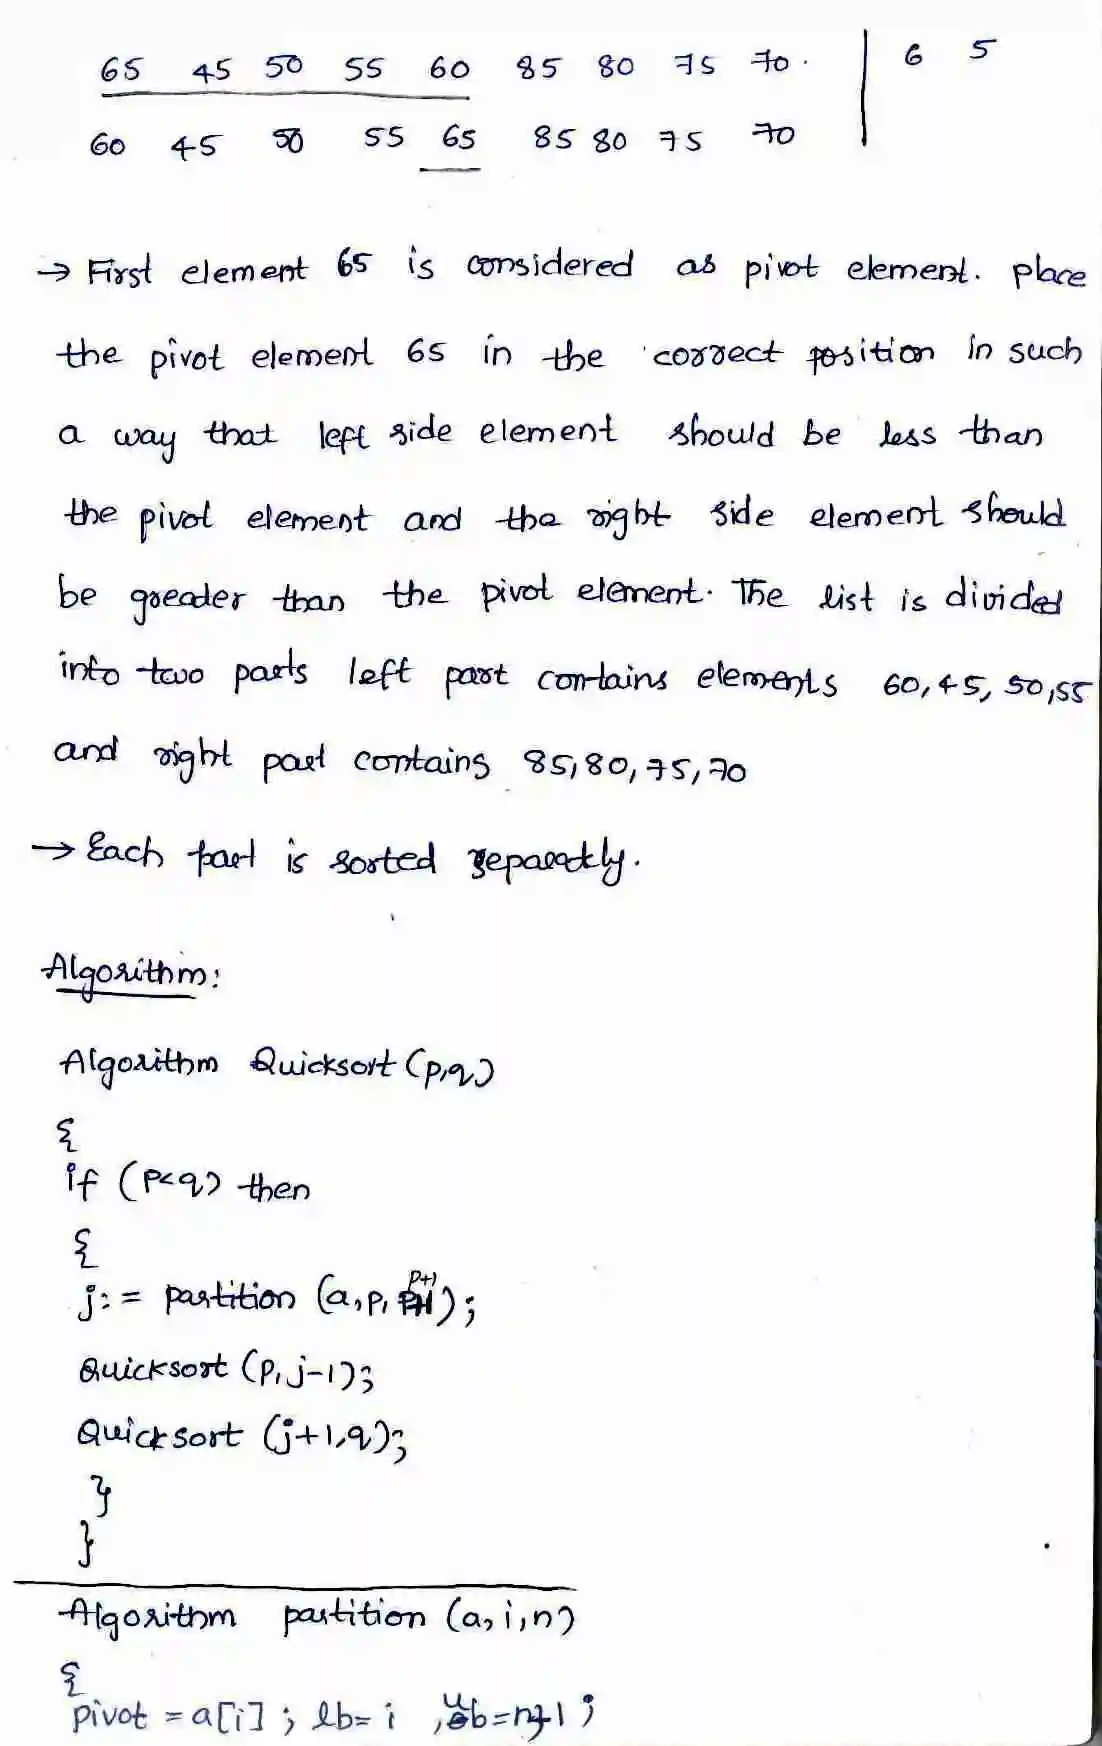 65 45 50 55 60 85 80 75 70 . | 6 5
60 45 50 55 65 85 80 75 70
→ First element 65 is considered as pivot element. place
the pivot element 65 in the correct position in such
a way that left side element should be less than
the pivot element and the right side element should
be greater than the pivot element. The list is divided
into two parts left part contains elements 60, 45, 50, 55
and right part contains 85, 80, 75, 70
→ Each part is sorted separately.
Algorithm:
Algorithm Quicksort (p,q)
{
if (p<q) then
{
j:= partition (a, p, p+1);
Quicksort (p, j-1);
Quicksort (j+1, q);
}
}
Algorithm partition (a, i, n)
{
pivot = a[i] ; lb= i , ub=n+1 ;